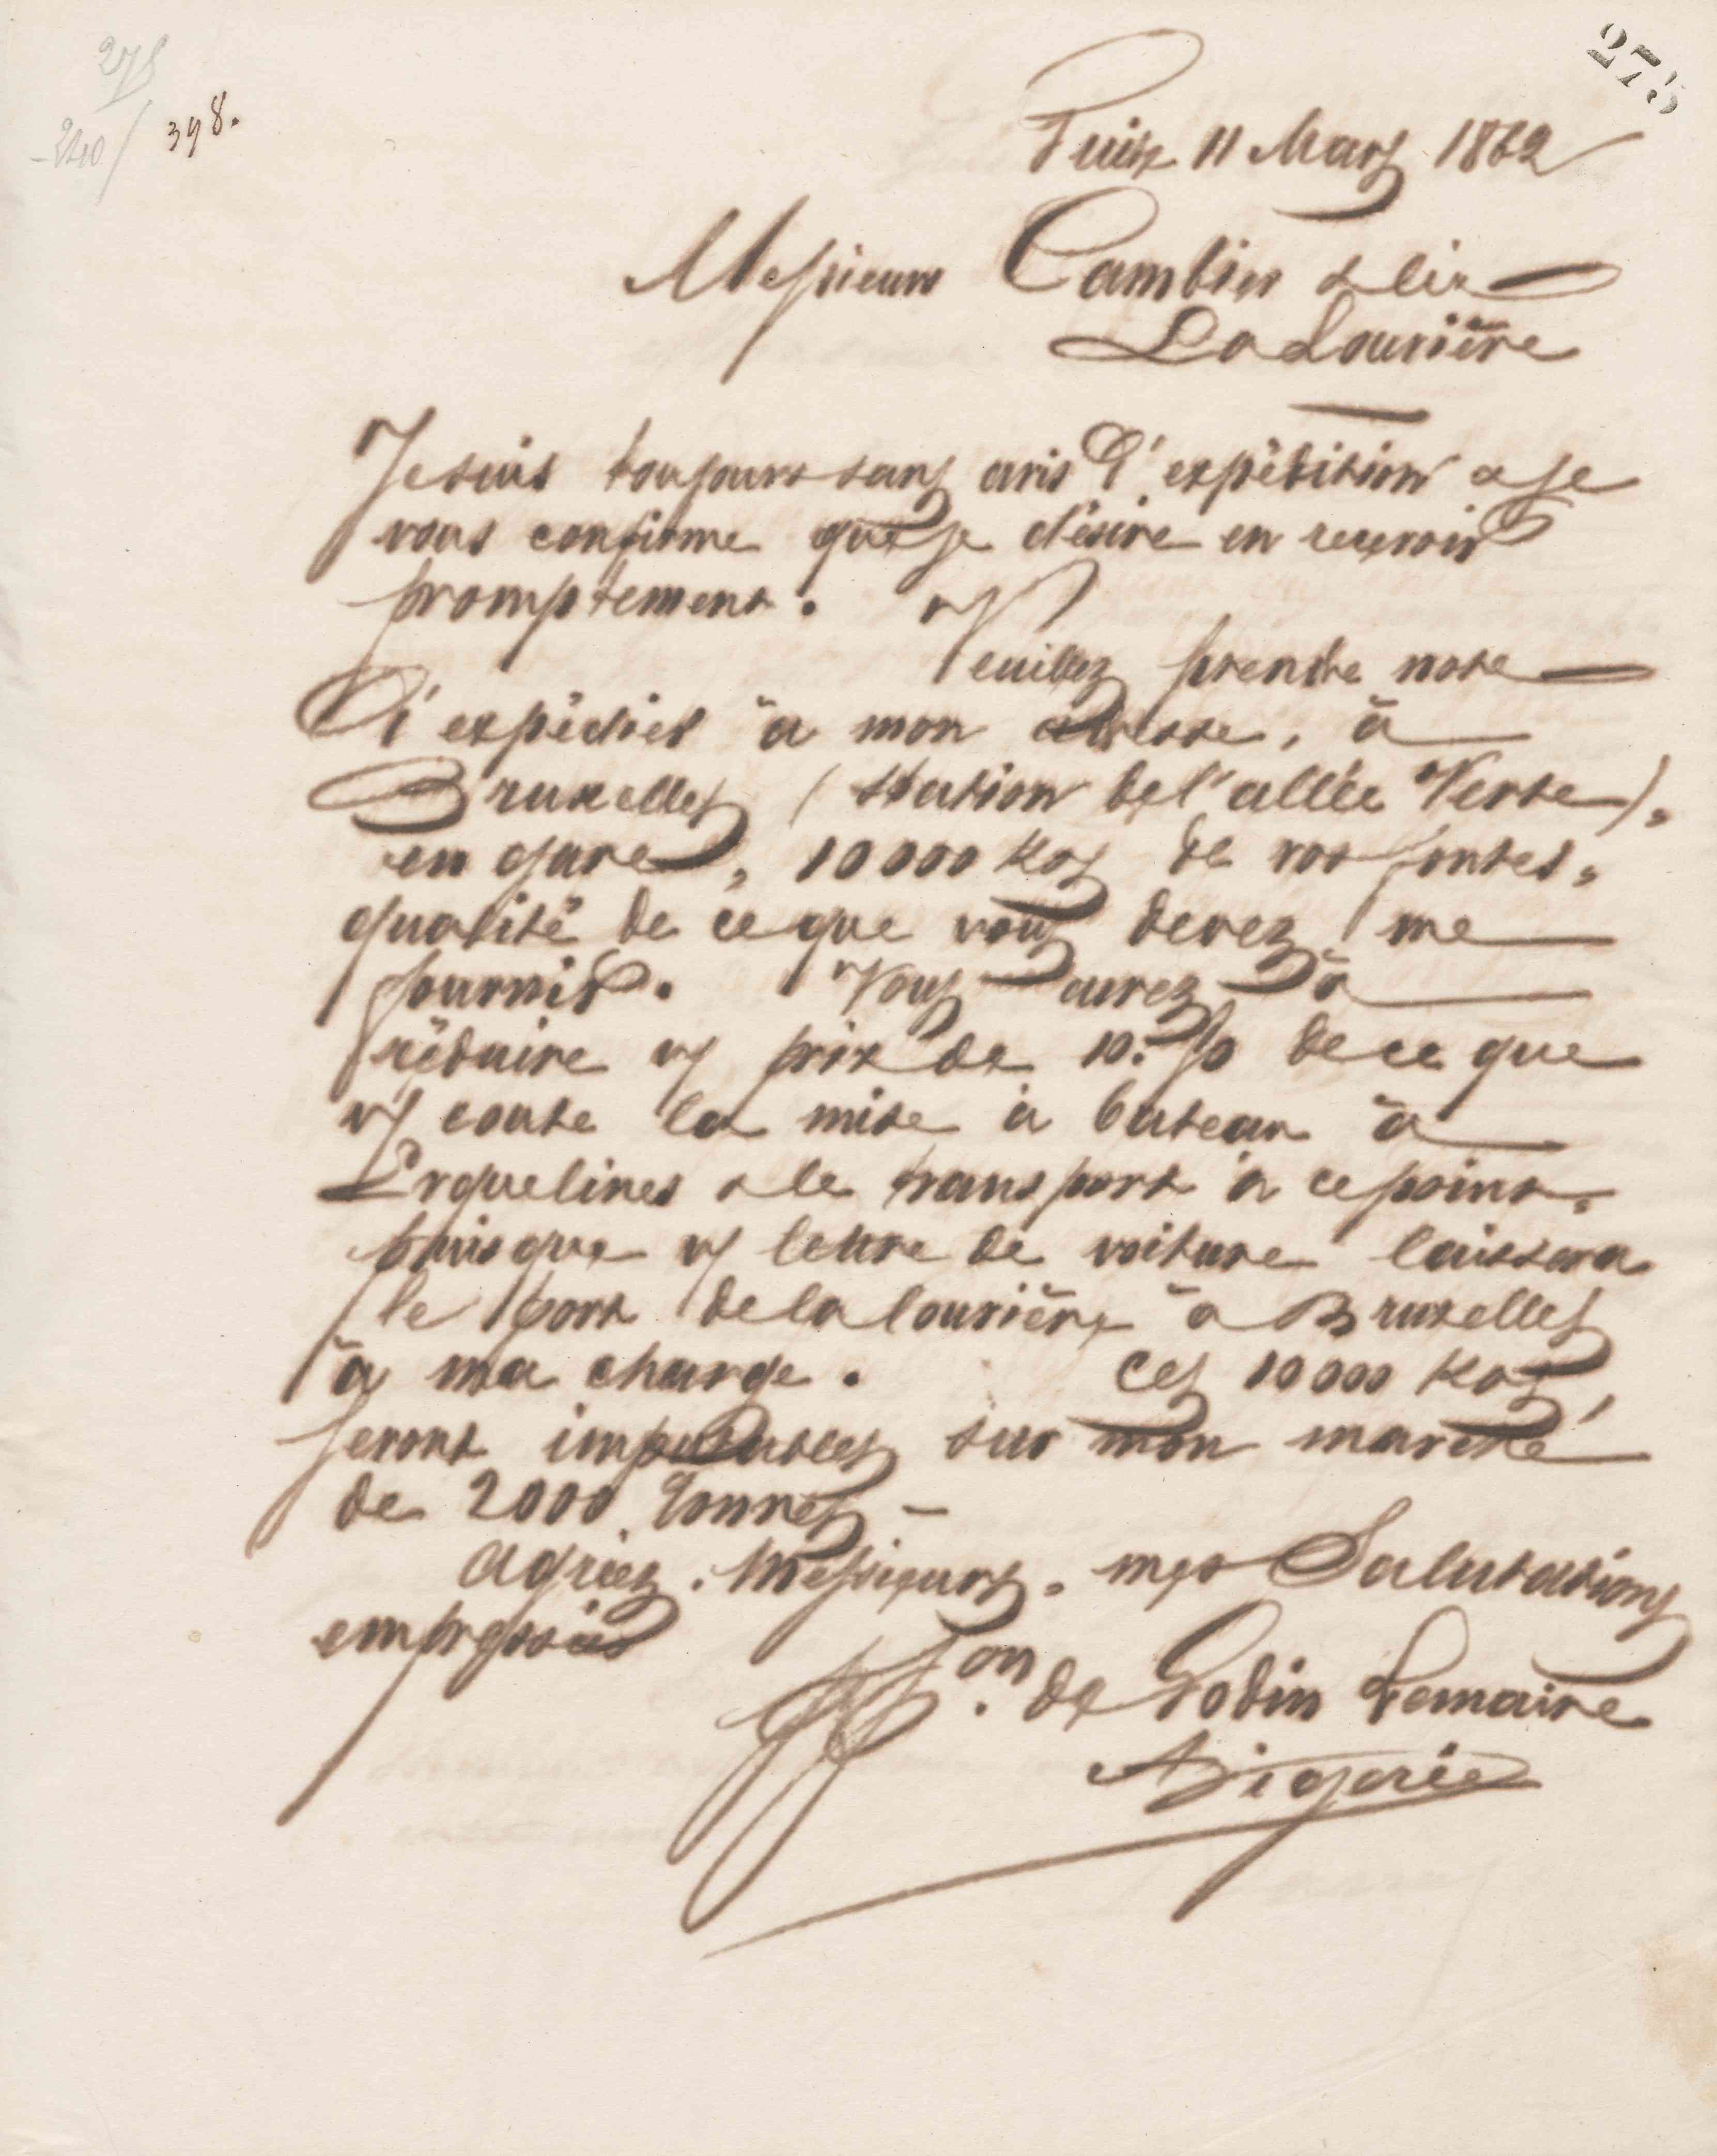 275
275
240
398.
Guise 11 Mars 1862
Messieurs Cambier & Cie
La Louvière
Je suis toujours sans avis d'expédition & je
vous confirme que je désire en recevoir
promptement.
Veuillez prendre note
d'expédier à mon adresse, à
Bruxelles (station de l'allée Verte),
en gare, 10000 Kos de vos fontes,
qualité de ce que vous devez me
fournir. Vous aurez à
réduire vs prix de 10.% de ce que
vs coute la mise à bateau à
Erquelines & le transport à ce point,
puisque vs lettre de voiture laissera
le port de la louvière à Bruxelles
à ma charge. Ces 10000 Kos
seront imputables sur mon marché
de 2000 Tonnes -
Agréez, Messieurs, mes Salutations
empressées
Pon. de Godin Lemaire